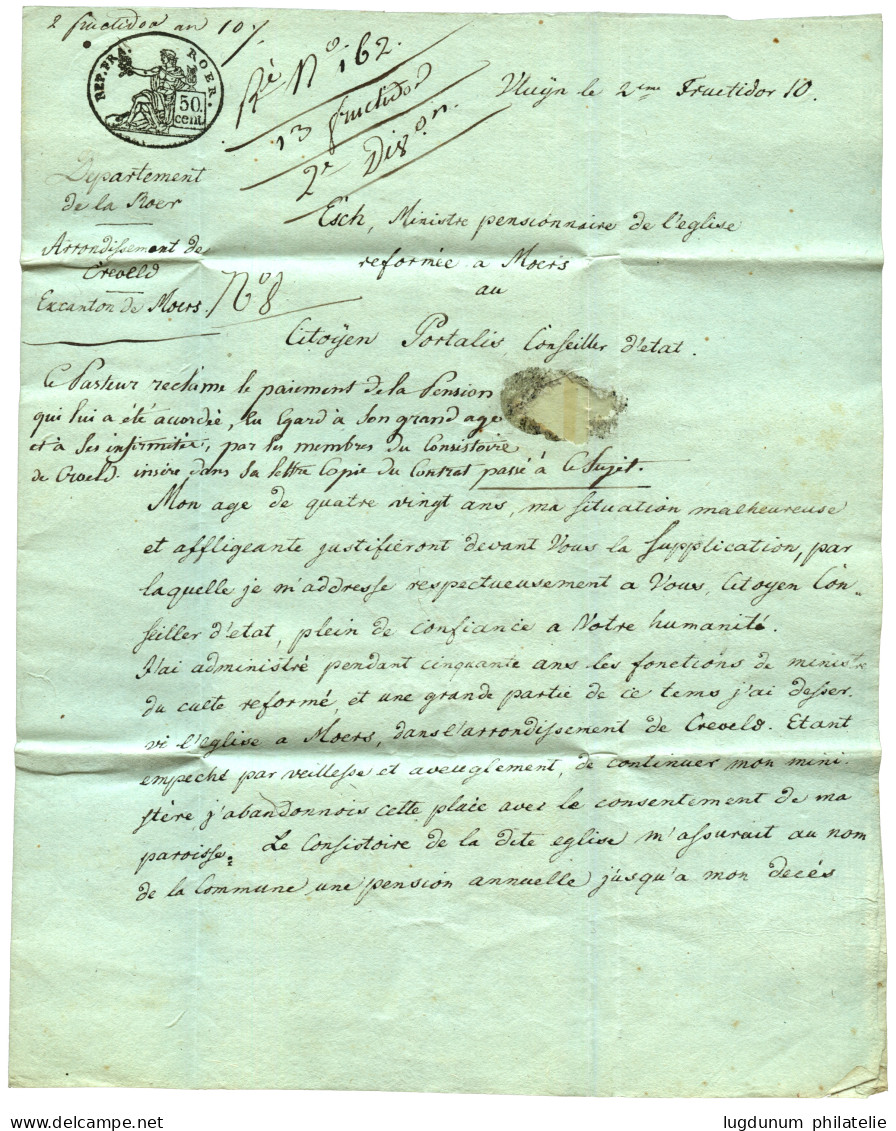 2 fructidor an 10
REP. FRA. ROER.
50.
cent.
Ré No. 162.
13 fructidor
2e Dison.
Vluÿn le 2me Fructidor 10.
Departement
de la Roer
Arrondissement de
Creveld
Excanton de Moers.
No 8
Esch, Ministre pensionnaire de l'eglise
reformée a Moers
au
Citoÿen Portalis Conseiller d'etat.
Ce Pasteur reclame le paiement de la Pension
qui lui a été accordée, Eu Egard à Son grand age
et à Ses infirmités, par les membres du Consistoire
de Creveld. insére dans Sa lettre Copie du Contrat passé à Ce Sujet.
Mon age de quatre vingt ans, ma situation malheureuse
et affligeante justifieront devant Vous la Supplication, par
laquelle je m'addresse respectueusement a Vous, Citoyen Con-
seiller d'etat, plein de confiance a Votre humanité.
J'ai administré pendant cinquante ans les fonctions de ministre
du culte reformé, et une grande partie de ce tems j'ai desser-
vi l'eglise a Moers, dans l'arrondissement de Creveld. Etant
empeché par veillesse et aveuglement, de continuer mon mini-
stère, j'abandonnois cette place avec le consentement de ma
paroisse. Le Consistoire de la dite eglise m'assurait au nom
de la Commune une pension annuelle jusqu'a mon decés
lugdunum philatelie